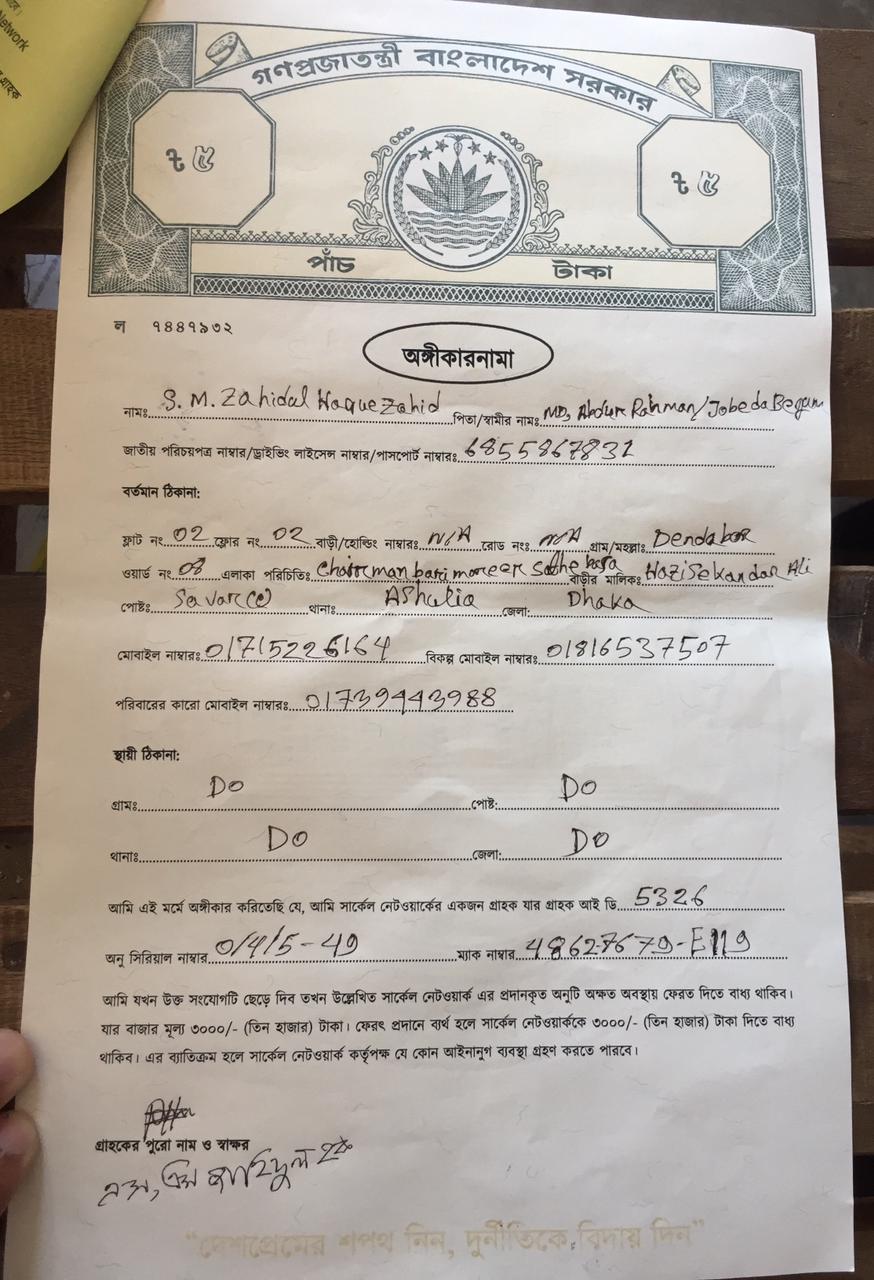 Network
গ্রাহক
গণপ্রজাতন্ত্রী বাংলাদেশ সরকার
৳ ৫ ৳ ৫
পাঁচ টাকা
ল ৭৪৪৭৯৩২
অঙ্গীকারনামা
নামঃ S. M. Zahidul Haque Zahid পিতা/স্বামীর নামঃ MD, Abdur Rahman/Jobeda Begum
জাতীয় পরিচয়পত্র নাম্বার/ড্রাইভিং লাইসেন্স নাম্বার/পাসপোর্ট নাম্বারঃ 6855867831
বর্তমান ঠিকানা:
ফ্লাট নং 02 ফ্লোর নং 02 বাড়ী/হোল্ডিং নাম্বারঃ N/A রোড নংঃ N/A গ্রাম/মহল্লাঃ Dendabor
ওয়ার্ড নং 08 এলাকা পরিচিতিঃ Chairman bari moneer basa বাড়ীর মালিকঃ Hazi Sekandar Ali
পোষ্টঃ Savar থানাঃ AShulia জেলা: Dhaka
মোবাইল নাম্বারঃ 01715226164 বিকল্প মোবাইল নাম্বারঃ 01816537507
পরিবারের কারো মোবাইল নাম্বারঃ 01739443988
স্থায়ী ঠিকানা:
গ্রামঃ Do পোষ্ট: Do
থানাঃ Do জেলা: Do
আমি এই মর্মে অঙ্গীকার করিতেছি যে, আমি সার্কেল নেটওয়ার্কের একজন গ্রাহক যার গ্রাহক আই ডি 5326
অনু সিরিয়াল নাম্বার 0/4/5-49 ম্যাক নাম্বার 48627679-E119
আমি যখন উক্ত সংযোগটি ছেড়ে দিব তখন উল্লেখিত সার্কেল নেটওয়ার্ক এর প্রদানকৃত অনুটি অক্ষত অবস্থায় ফেরত দিতে বাধ্য থাকিব।
যার বাজার মূল্য ৩০০০/- (তিন হাজার) টাকা। ফেরৎ প্রদানে ব্যর্থ হলে সার্কেল নেটওয়ার্ককে ৩০০০/- (তিন হাজার) টাকা দিতে বাধ্য
থাকিব। এর ব্যাতিক্রম হলে সার্কেল নেটওয়ার্ক কর্তৃপক্ষ যে কোন আইনানুগ ব্যবস্থা গ্রহণ করতে পারবে।
গ্রাহকের পুরো নাম ও স্বাক্ষর
এস, এম জাহিদুল হক
“দেশপ্রেমের শপথ নিন, দুর্নীতিকে বিদায় দিন”